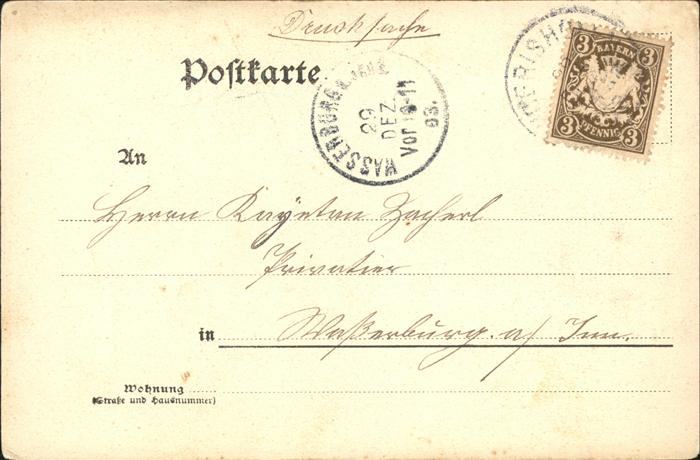 Drucksache
Postkarte
WASSERBURG
29
DEZ.
Vor 10-11
03.
3 BAYERN 3
3 PFENNIG 3
An
Herrn Kayetan Zacherl
Privatier
in Waßerburg a/ Inn.
Wohnung
(Straße und Hausnummer)